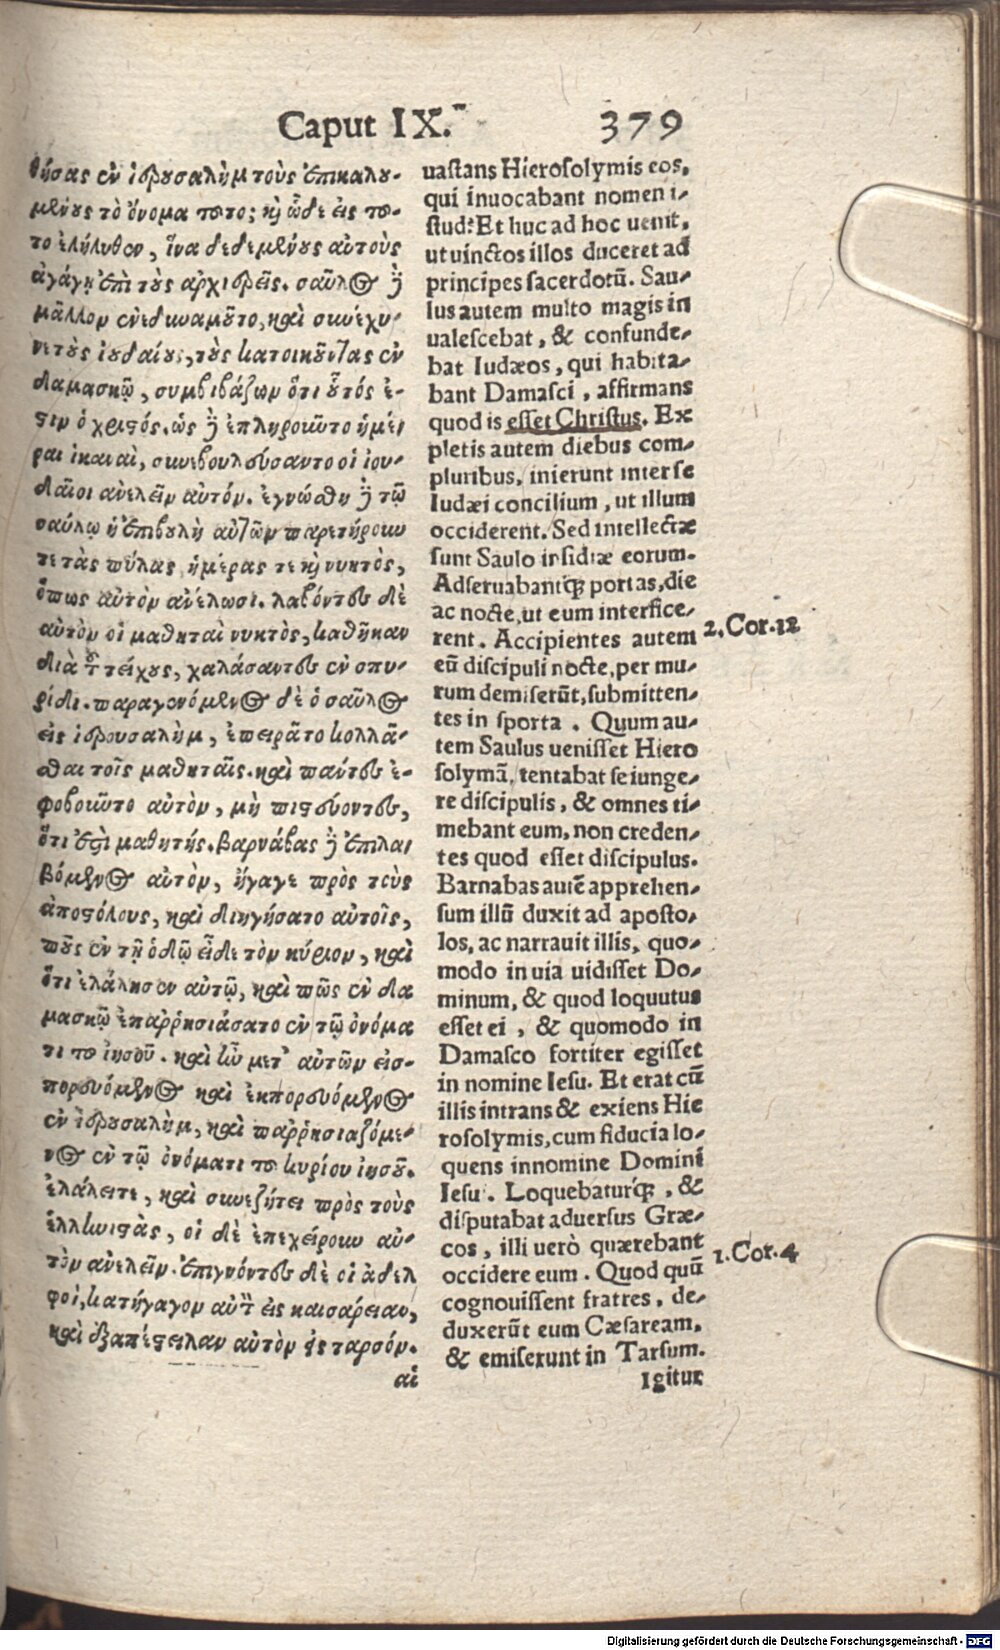 Caput IX. 379
θήσας ἐν ἱερουσαλὴμ τοὺς ἐπικαλου-
μένους τὸ ὄνομα τοῦτο; καὶ ὧδε εἰς τοῦ-
το ἐλήλυθεν, ἵνα δεδεμένους αὐτοὺς
ἀγάγῃ ἐπὶ τοὺς ἀρχιερεῖς. σαῦλος δὲ
μᾶλλον ἐνεδυναμοῦτο, καὶ συνέχυ-
νε τοὺς ἰουδαίους, τοὺς κατοικοῦντας ἐν
δαμασκῷ, συμβιβάζων ὅτι οὗτός ἐ-
στιν ὁ χριστός. ὡς δὲ ἐπληροῦντο ἡμέ
ραι ἱκαναὶ, συνεβουλεύσαντο οἱ ἰου-
δαῖοι ἀνελεῖν αὐτόν. ἐγνώσθη δὲ τῷ
σαύλῳ ἡ ἐπιβουλὴ αὐτῶν παρετήρουν
τε τὰς πύλας ἡμέρας τε καὶ νυκτὸς,
ὅπως αὐτὸν ἀνέλωσι. λαβόντες δὲ
αὐτὸν οἱ μαθηταὶ νυκτὸς, καθῆκαν
διὰ τοῦ τείχους, χαλάσαντες ἐν σπυ-
ρίδι. παραγενόμενος δὲ ὁ σαῦλος
εἰς ἱερουσαλὴμ, ἐπειρᾶτο κολλᾶ-
σθαι τοῖς μαθηταῖς. καὶ πάντες ἐ-
φοβοῦντο αὐτὸν, μὴ πιστεύοντες,
ὅτι ἐστὶ μαθητής. βαρνάβας δὲ ἐπιλα
βόμενος αὐτὸν, ἤγαγε πρὸς τοὺς
ἀποστόλους, καὶ διηγήσατο αὐτοῖς,
πῶς ἐν τῇ ὁδῷ εἶδε τὸν κύριον, καὶ
ὅτι ἐλάλησεν αὐτῷ, καὶ πῶς ἐν δα
μασκῷ ἐπαῤῥησιάσατο ἐν τῷ ὀνόμα
τι τοῦ ἰησοῦ. καὶ ἦν μετ' αὐτῶν εἰσ-
πορευόμενος καὶ ἐκπορευόμενος
ἐν ἱερουσαλὴμ, καὶ παῤῥησιαζόμε-
νος ἐν τῷ ὀνόματι τοῦ κυρίου ἰησοῦ.
ἐλάλει τε, καὶ συνεζήτει πρὸς τοὺς
ἑλληνιστὰς, οἱ δὲ ἐπεχείρουν αὐ-
τὸν ἀνελεῖν. ἐπιγνόντες δὲ οἱ ἀδελ
φοὶ, κατήγαγον αὐτὸν εἰς καισάρειαν,
καὶ ἐξαπέστειλαν αὐτὸν εἰς ταρσόν.
αἱ
uastans Hierosolymis eos,
qui inuocabant nomen i-
stud? Et huc ad hoc uenit,
ut uinctos illos duceret ad
principes sacerdotũ. Sau-
lus autem multo magis in
ualescebat, & confunde-
bat Iudæos, qui habita-
bant Damasci, affirmans
quod is esset Christus. Ex
pletis autem diebus com-
pluribus, inierunt inter se
Iudæi concilium, ut illum
occiderent. Sed intellectæ
sunt Saulo insidiæ eorum.
Adseruabantq́; portas, die
ac nocte, ut eum interfice-
rent. Accipientes autem
eũ discipuli nocte, per mu-
rum demiserũt, submitten-
tes in sporta. Quum au-
tem Saulus uenisset Hiero
solymã, tentabat se iunge-
re discipulis, & omnes ti-
mebant eum, non creden-
tes quod esset discipulus.
Barnabas autẽ apprehen-
sum illũ duxit ad aposto-
los, ac narrauit illis, quo-
modo in uia uidisset Do-
minum, & quod loquutus
esset ei, & quomodo in
Damasco fortiter egisset
in nomine Iesu. Et erat cũ
illis intrans & exiens Hie
rosolymis, cum fiducia lo-
quens in nomine Domini
Iesu. Loquebaturq́;, &
disputabat aduersus Græ-
cos, illi uerò quærebant
occidere eum. Quod quũ
cognouissent fratres, de-
duxerũt eum Cæsaream,
& emiserunt in Tarsum.
Igitur
2. Cor. 12
1. Cor. 4
Digitalisierung gefördert durch die Deutsche Forschungsgemeinschaft - DFG